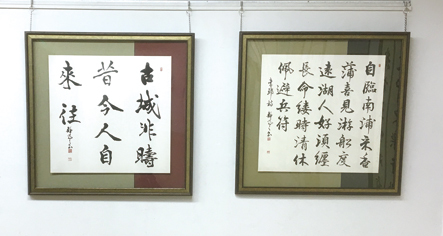 古城非疇
昔今人自
來往
自臨南浦采香
蒲喜見游船度
遠湖人好須纏
長命縷時清休
佩避兵符